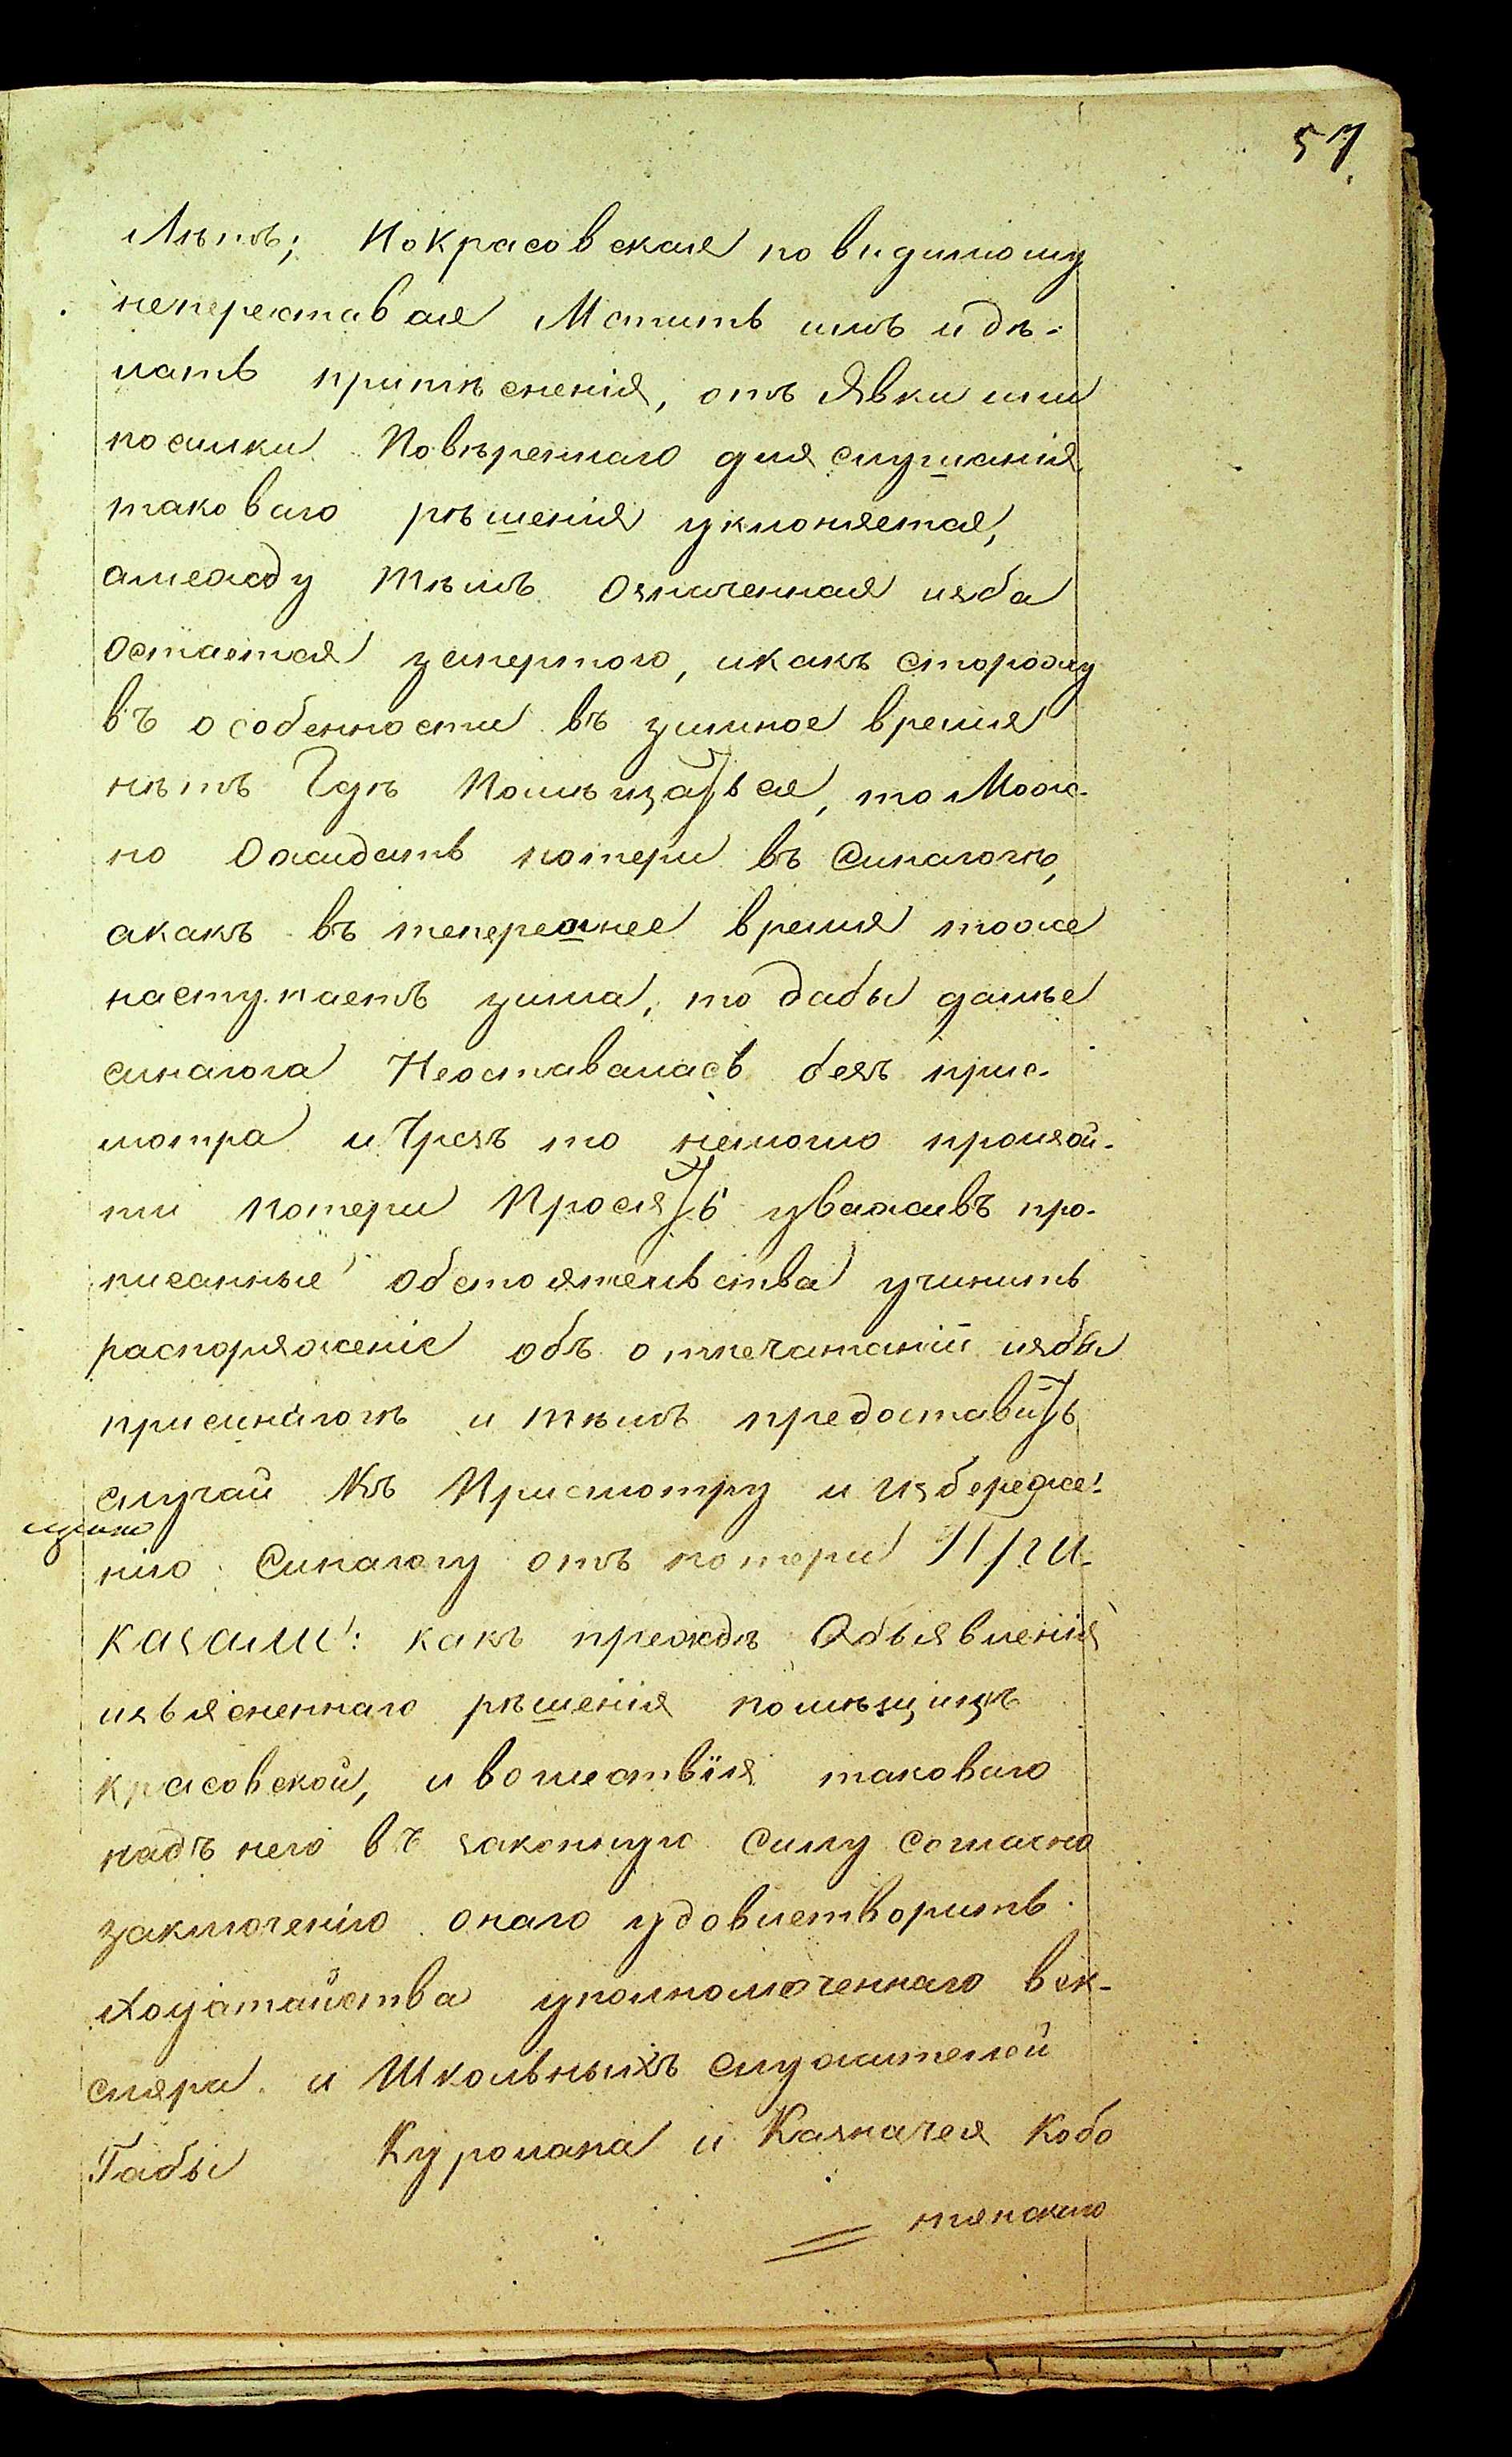 57.
Лѣтъ; Но Красовская повидимому
непереставая Мстить имъ и дѣ-
лать притѣсненія, отъ Явки или
посылки Повѣреннаго для слушанія
таковаго рѣшенія уклоняется,
амежду тѣмъ означенная изба
остается запертою, икакъ сторожу
въ особенности въ зимное время
нѣтъ Гдѣ Помѣщаться, то Мож-
но Ожидать потери въ Синагогѣ,
акакъ въ теперешнее время тоже
наступаетъ зима, то дабы далѣе
синагога Неоставалась безъ прис-
мотра и Чрезъ то немогло произой-
ти потери Просятъ уваживъ про-
писанные обстоятельства учинить
распоряженіе объ отпечатаніи избы
присинагогѣ и тѣмъ предоставить
случай Къ Присмотру и Избереже-
нію Синагогу отъ потери При-
казали: какъ прежде Объявленія
изъясненнаго рѣшенія помѣщицѣ
красовской, и вошествія таковаго
надъ него въ законную силу согласно
заключенію онаго удовлетворить
Ходатайства уполномоченнаго Век-
слера и Школьныхъ служителей
Габы Куромана и Казначея Кобо
тянскаго